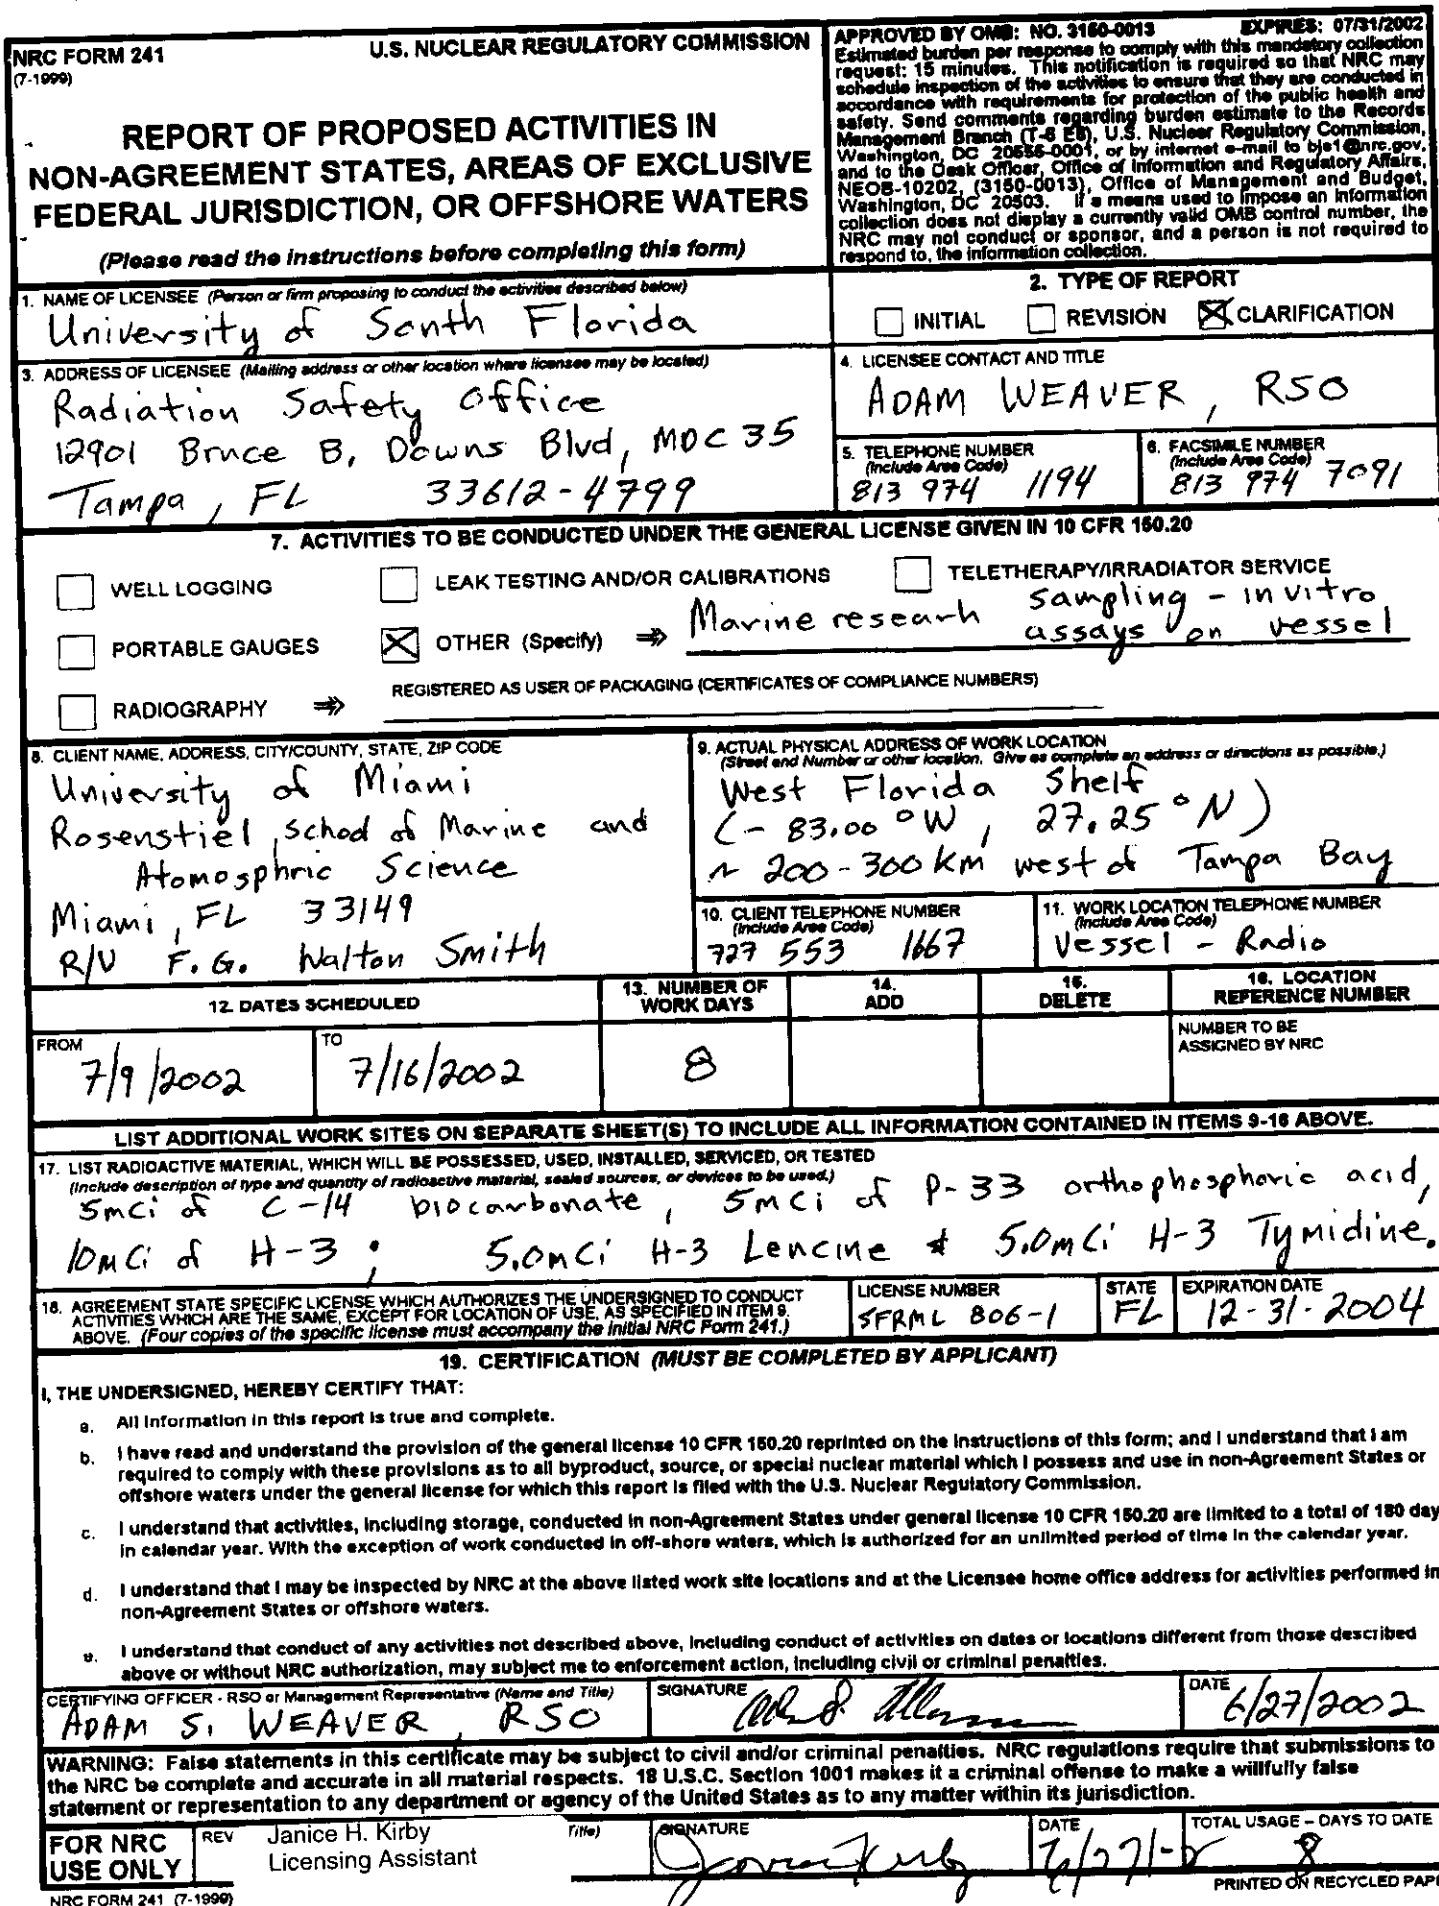 NRC FORM 241
(7-1999)
U.S. NUCLEAR REGULATORY COMMISSION
REPORT OF PROPOSED ACTIVITIES IN
NON-AGREEMENT STATES, AREAS OF EXCLUSIVE
FEDERAL JURISDICTION, OR OFFSHORE WATERS
(Please read the instructions before completing this form)
APPROVED BY OMB: NO. 3150-0013 EXPIRES: 07/31/2002
Estimated burden per response to comply with this mandatory collection
request: 15 minutes. This notification is required so that NRC may
schedule inspection of the activities to ensure that they are conducted in
accordance with requirements for protection of the public health and
safety. Send comments regarding burden estimate to the Records
Management Branch (T-6 E6), U.S. Nuclear Regulatory Commission,
Washington, DC 20555-0001, or by internet e-mail to bjs1@nrc.gov,
and to the Desk Officer, Office of Information and Regulatory Affairs,
NEOB-10202, (3150-0013), Office of Management and Budget,
Washington, DC 20503. If a means used to impose an information
collection does not display a currently valid OMB control number, the
NRC may not conduct or sponsor, and a person is not required to
respond to, the information collection.
1. NAME OF LICENSEE (Person or firm proposing to conduct the activities described below)
University of South Florida
2. TYPE OF REPORT
INITIAL REVISION CLARIFICATION
3. ADDRESS OF LICENSEE (Mailing address or other location where licensee may be located)
Radiation Safety Office
12901 Bruce B. Downs Blvd, MDC 35
Tampa, FL 33612-4799
4. LICENSEE CONTACT AND TITLE
ADAM WEAVER, RSO
5. TELEPHONE NUMBER
(Include Area Code)
813 974 1194
6. FACSIMILE NUMBER
(Include Area Code)
813 974 7091
7. ACTIVITIES TO BE CONDUCTED UNDER THE GENERAL LICENSE GIVEN IN 10 CFR 150.20
WELL LOGGING LEAK TESTING AND/OR CALIBRATIONS TELETHERAPY/IRRADIATOR SERVICE
PORTABLE GAUGES OTHER (Specify) ⇒ Marine researh sampling - in vitro
assays on vessel
RADIOGRAPHY ⇒ REGISTERED AS USER OF PACKAGING (CERTIFICATES OF COMPLIANCE NUMBERS)
8. CLIENT NAME, ADDRESS, CITY/COUNTY, STATE, ZIP CODE
University of Miami
Rosenstiel, School of Marine and
Atomosphric Science
Miami, FL 33149
R/V F.G. Walton Smith
9. ACTUAL PHYSICAL ADDRESS OF WORK LOCATION
(Street and Number or other location. Give as complete an address or directions as possible.)
West Florida Shelf
(- 83.00 °W, 27.25 °N)
~ 200-300 km west of Tampa Bay
10. CLIENT TELEPHONE NUMBER
(Include Area Code)
727 553 1667
11. WORK LOCATION TELEPHONE NUMBER
(Include Area Code)
Vessel - Radio
12. DATES SCHEDULED
13. NUMBER OF
WORK DAYS
14.
ADD
15.
DELETE
16. LOCATION
REFERENCE NUMBER
FROM
7/9/2002
TO
7/16/2002
8
NUMBER TO BE
ASSIGNED BY NRC
LIST ADDITIONAL WORK SITES ON SEPARATE SHEET(S) TO INCLUDE ALL INFORMATION CONTAINED IN ITEMS 9-16 ABOVE.
17. LIST RADIOACTIVE MATERIAL, WHICH WILL BE POSSESSED, USED, INSTALLED, SERVICED, OR TESTED
(Include description of type and quantity of radioactive material, sealed sources, or devices to be used.)
5mCi of C-14 biocarbonate, 5mCi of P-33 orthophosphoric acid,
10mCi of H-3; 5.0mCi H-3 Leucine & 5.0mCi H-3 Tymidine.
18. AGREEMENT STATE SPECIFIC LICENSE WHICH AUTHORIZES THE UNDERSIGNED TO CONDUCT
ACTIVITIES WHICH ARE THE SAME, EXCEPT FOR LOCATION OF USE, AS SPECIFIED IN ITEM 9.
ABOVE. (Four copies of the specific license must accompany the initial NRC Form 241.)
LICENSE NUMBER
SFRML 806-1
STATE
FL
EXPIRATION DATE
12-31-2004
19. CERTIFICATION (MUST BE COMPLETED BY APPLICANT)
I, THE UNDERSIGNED, HEREBY CERTIFY THAT:
a. All information in this report is true and complete.
b. I have read and understand the provision of the general license 10 CFR 150.20 reprinted on the instructions of this form; and I understand that I am
required to comply with these provisions as to all byproduct, source, or special nuclear material which I possess and use in non-Agreement States or
offshore waters under the general license for which this report is filed with the U.S. Nuclear Regulatory Commission.
c. I understand that activities, including storage, conducted in non-Agreement States under general license 10 CFR 150.20 are limited to a total of 180 day
in calendar year. With the exception of work conducted in off-shore waters, which is authorized for an unlimited period of time in the calendar year.
d. I understand that I may be inspected by NRC at the above listed work site locations and at the Licensee home office address for activities performed in
non-Agreement States or offshore waters.
e. I understand that conduct of any activities not described above, including conduct of activities on dates or locations different from those described
above or without NRC authorization, may subject me to enforcement action, including civil or criminal penalties.
CERTIFYING OFFICER - RSO or Management Representative (Name and Title)
ADAM S. WEAVER, RSO
SIGNATURE
DATE
6/27/2002
WARNING: False statements in this certificate may be subject to civil and/or criminal penalties. NRC regulations require that submissions to
the NRC be complete and accurate in all material respects. 18 U.S.C. Section 1001 makes it a criminal offense to make a willfully false
statement or representation to any department or agency of the United States as to any matter within its jurisdiction.
FOR NRC
USE ONLY
REV
Janice H. Kirby
Licensing Assistant
Title)
SIGNATURE
DATE
TOTAL USAGE - DAYS TO DATE
8
NRC FORM 241 (7-1999)
PRINTED ON RECYCLED PAPE